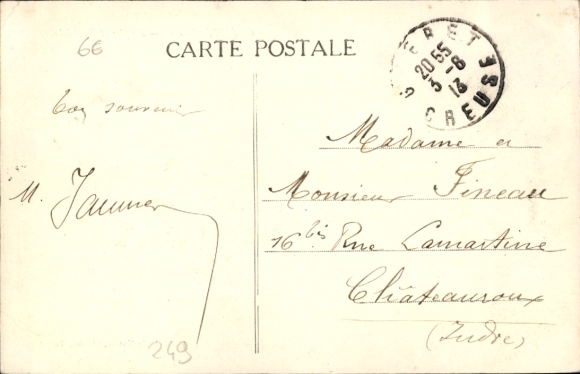 66
CARTE POSTALE
20 55
3 - 8
13
CREUSE
Bon souvenir
M.
Madame et
Monsieur Fineau
16 bis Rue Lamartine
Châteauroux
(Indre)
249